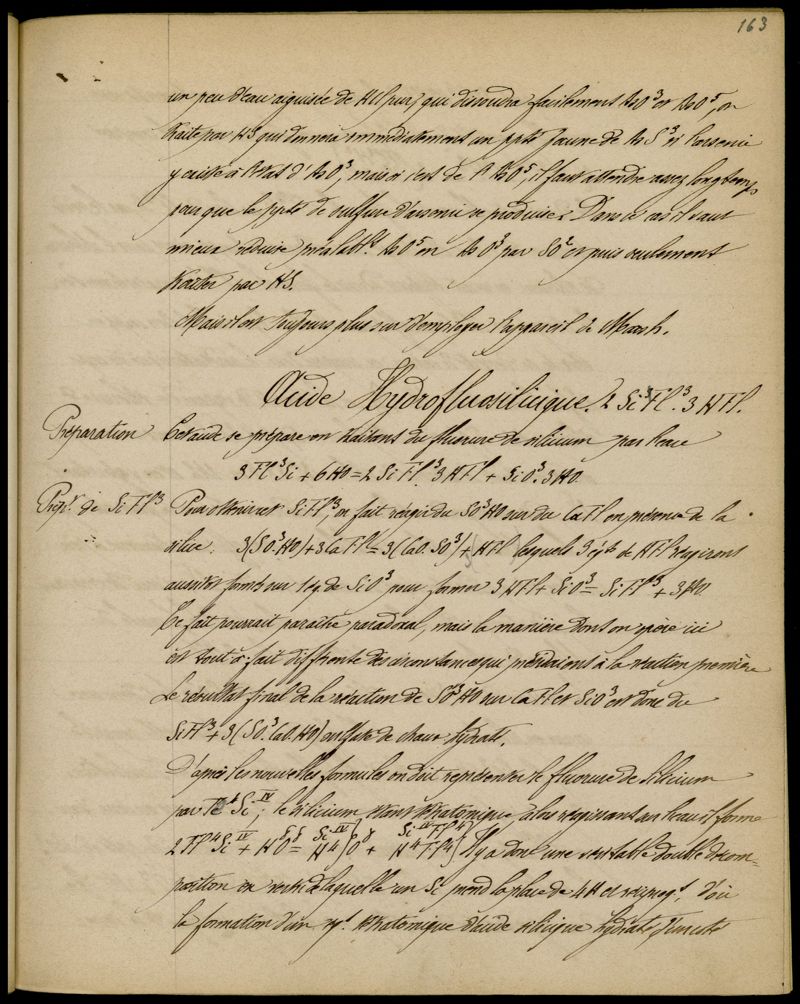 163
un peu d'eau aiguisée de HCl pur, qui dissoudra facilement AsO³ et AsO⁵, on
traite par HS qui donnera immédiatement un ppté jaune de AsS³ si l'arsenic
y existe à l'état d'AsO³, mais si c'est de l'AsO⁵, il faut attendre assez longtemps
pour que le ppté de sulfure d'arsenic se produise. Dans ce cas il vaut
mieux réduire préalabl.ᵗ AsO⁵ en AsO³ par SO² et puis seulement
traiter par HS.
Mais il est toujours plus sur d'employer l'appareil de Marsh.
Acide Hydrofluosilicique. 2 Si Fl³. 3 HFl.
Préparation
Cet acide se prépare en traitant du fluorure de silicium par l'eau
3 Fl³Si + 6HO = 2 SiFl³. 3HFl + SiO³. 3HO.
Prépᵒⁿ de SiFl³
Pour obtenir SiFl³, on fait réagir du SO³HO sur du CaFl en présence de la
silice. 3(SO³.HO) + 3CaFl = 3(CaO.SO³) + HFl lesquels 3 éqts de HFl réagiront
aussitôt formés sur 1 éq. de SiO³ pour former 3 HFl + SiO³ = SiFl³ + 3HO.
Ce fait pourrait paraître paradoxal, mais la manière dont on opère ici
est tout à fait différente des circonstances qui présidaient à la réaction première
Le résultat final de la réaction de SO³HO sur CaFl et SiO³ est donc du
SiFl³ + 3(SO³.CaO.HO) sulfate de chaux hydraté.
D'après les nouvelles formules on doit représenter le fluorure de silicium
par Fl⁴Si^IV; le silicium étant tétratomique, alors réagissant sur l'eau il forme
2 Fl⁴Si^IV + H⁸O⁴ = Si^IV H⁴} O⁴ + Si^IV Fl⁴ H⁴Fl⁴} Il y a donc une véritable double décom=
position en vertu de laquelle un Si prend la place de 4H et réciproqᵗ. d'où
la formation d'un tétratomique d'acide silicique hydraté, ensuite